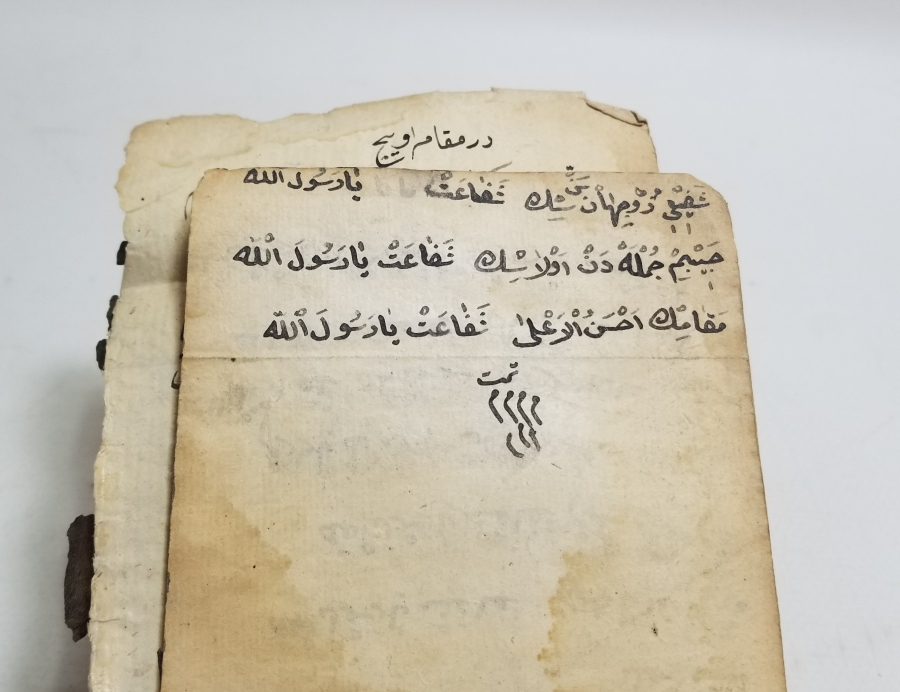 در مقام اویج
شَفٖیْعِ دُوْجِهَاْنْ سَنْ سِڭ شَفَاعَتْ يَارَسُولَ الله
حَبٖیْبِمْ جُمْلَهْ دَنْ اَوْلَا سِڭ شَفَاعَتْ يَارَسُولَ اللّٰه
مَقَامِڭ اَحْسَنُ الْاَعْلٰى شَفَاعَتْ يَارَسُولَ اللّٰه
تمت
م م م م
م م م